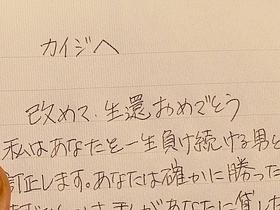 カイジへ
改めて、生還おめでとう
私はあなたを一生負け続ける男と
訂正します。あなたは確かに勝った